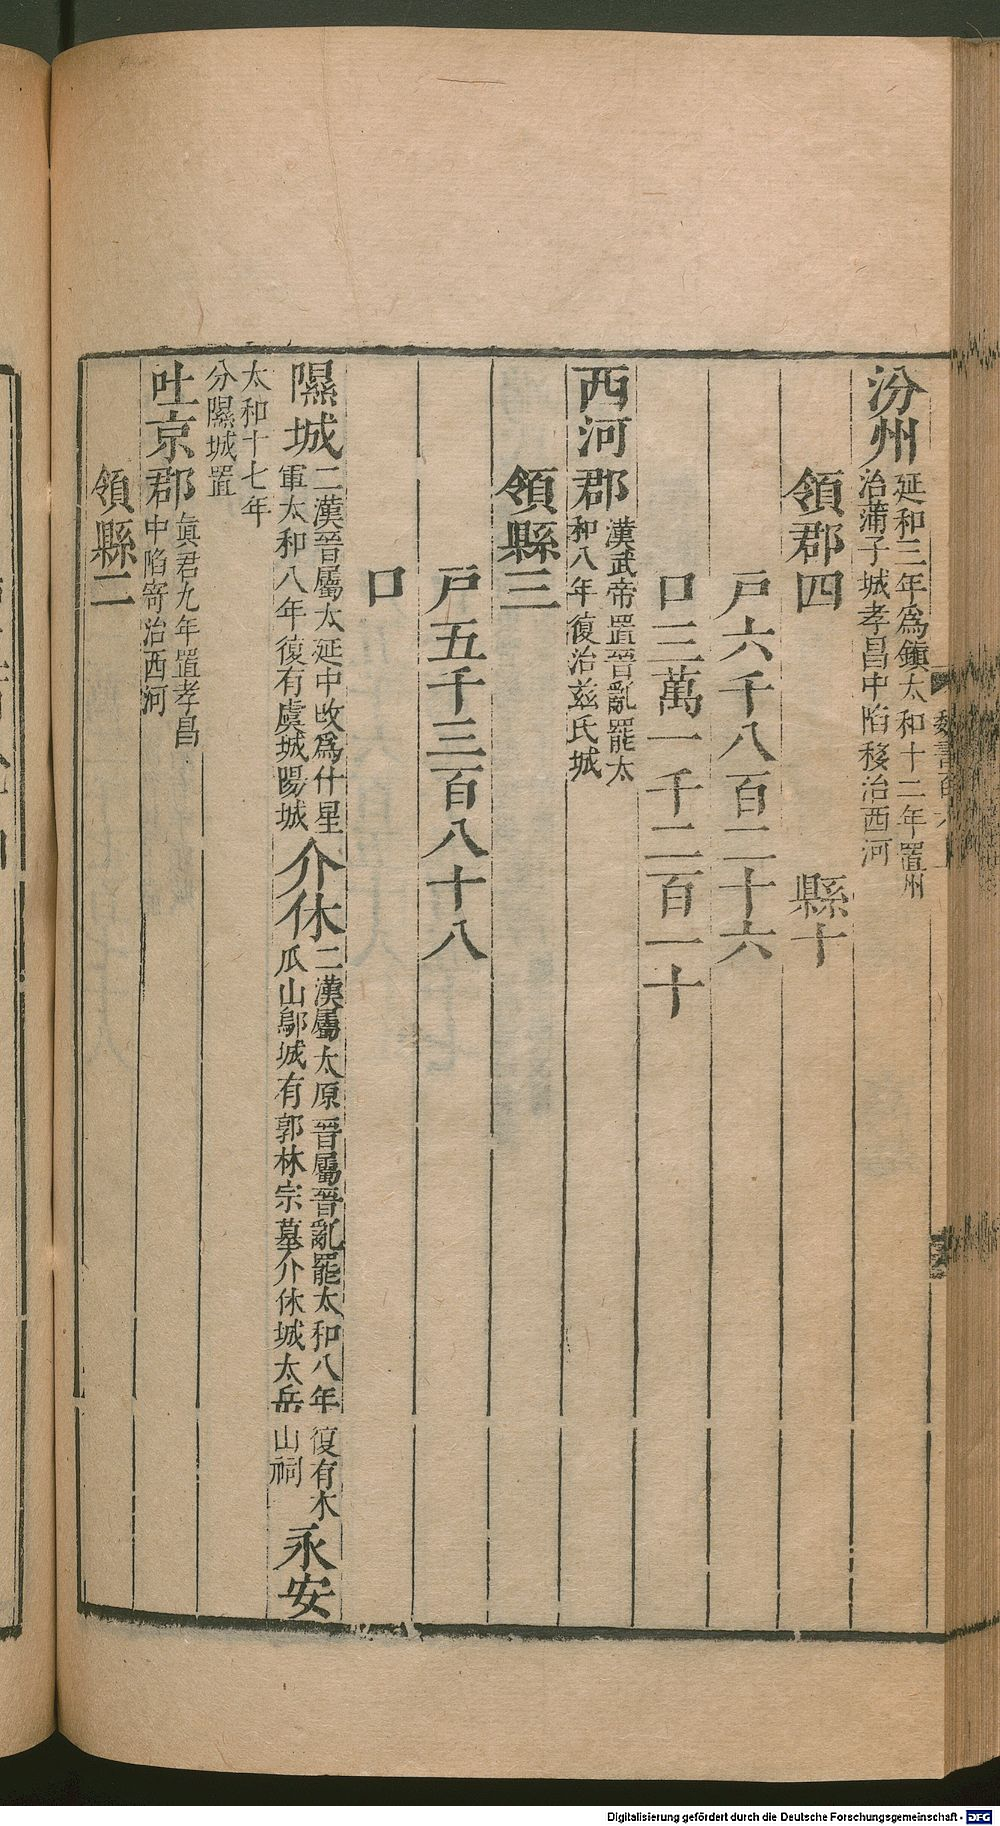 汾州延和三年為鎮太和十二年置州治蒲子城孝昌中陷移治西河
領郡四 縣十
戶六千八百二十六
口三萬一千二百一十
西河郡漢武帝置晉亂罷太和八年復治兹氏城
領縣三
戶五千三百八十八
口
隰城二漢晉屬太延中改為什星軍太和八年復有虞城陽城 介休二漢屬太原晉屬晉亂罷太和八年復有木瓜山鄔城有郭林宗墓介休城太岳山祠 永安
太和十七年分隰城置
吐京郡眞君九年置孝昌中陷寄治西河
領縣二
魏書百六上
Digitalisierung gefördert durch die Deutsche Forschungsgemeinschaft - DFG